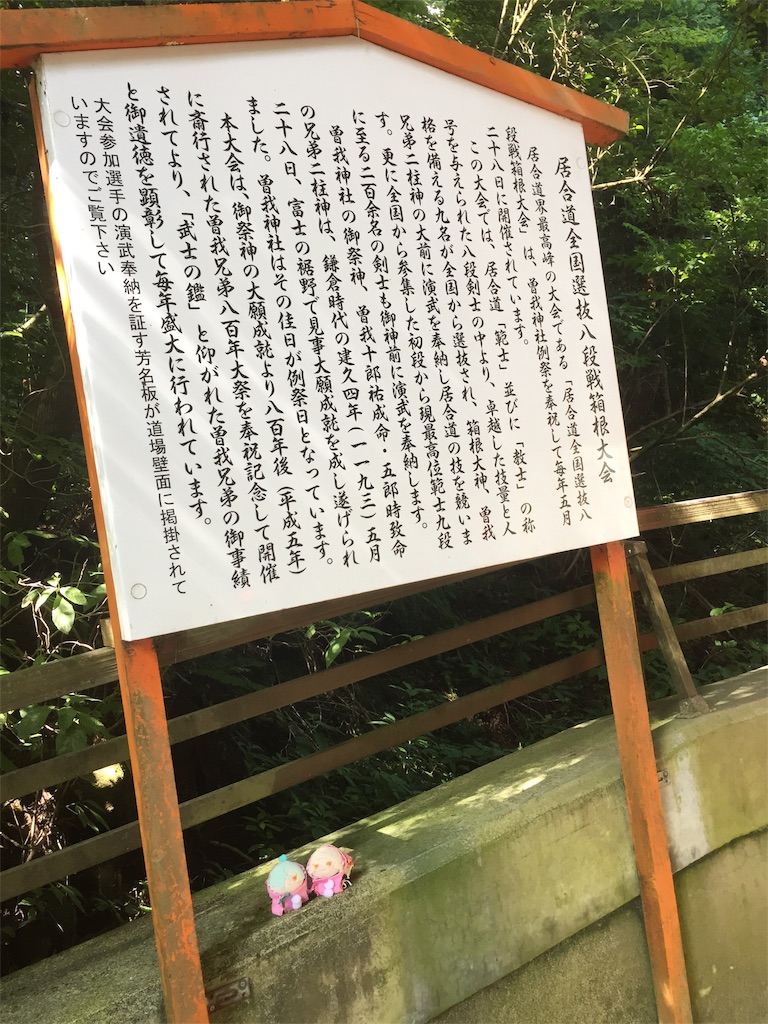 居合道全国選抜八段戦箱根大会
居合道界最高峰の大会である「居合道全国選抜八
段戦箱根大会」は、曽我神社例祭を奉祝して毎年五月
二十八日に開催されています。
この大会では、居合道「範士」並びに「教士」の称
号を与えられた八段剣士の中より、卓越した技量と人
格を備える九名が全国から選抜され、箱根大神、曽我
兄弟二柱神の大前に演武を奉納し居合道の技を競いま
す。更に全国から参集した初段から現最高位範士九段
に至る二百余名の剣士も御神前に演武を奉納します。
曽我神社の御祭神、曽我十郎祐成命・五郎時致命
の兄弟二柱神は、鎌倉時代の建久四年(一一九三)五月
二十八日、富士の裾野で見事大願成就を成し遂げられ
ました。曽我神社はその佳日が例祭日となっています。
本大会は、御祭神の大願成就より八百年後(平成五年)
に斎行された曽我兄弟八百年大祭を奉祝記念して開催
されてより、「武士の鑑」と仰がれた曽我兄弟の御事績
と御遺徳を顕彰して毎年盛大に行われています。
大会参加選手の演武奉納を証す芳名板が道場壁面に掲掛されて
いますのでご覧下さい